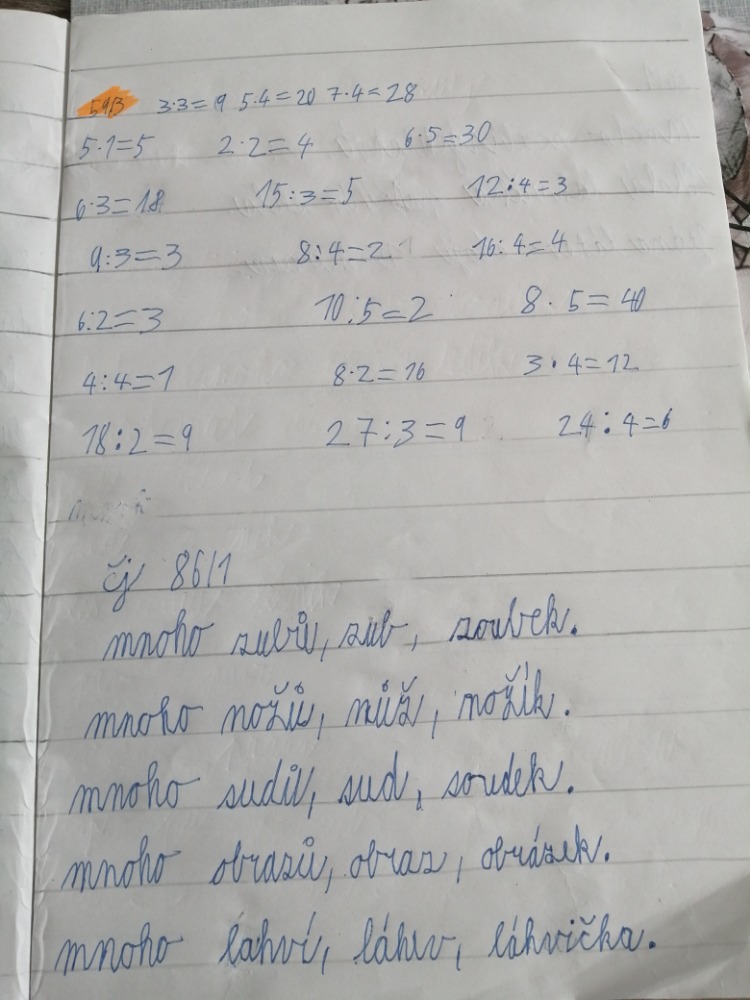 59/3 3·3=9 5·4=20 7·4=28
5·1=5 2·2=4 6·5=30
6·3=18 15:3=5 12:4=3
9:3=3 8:4=2 16:4=4
6:2=3 10:5=2 8·5=40
4:4=1 8·2=16 3·4=12
18:2=9 27:3=9 24:4=6
čj 86/1
mnoho zubů, zub, zoubek.
mnoho nožů, nůž, nožík.
mnoho sudů, sud, soudek.
mnoho obrazů, obraz, obrázek.
mnoho lahví, láhev, láhvička.